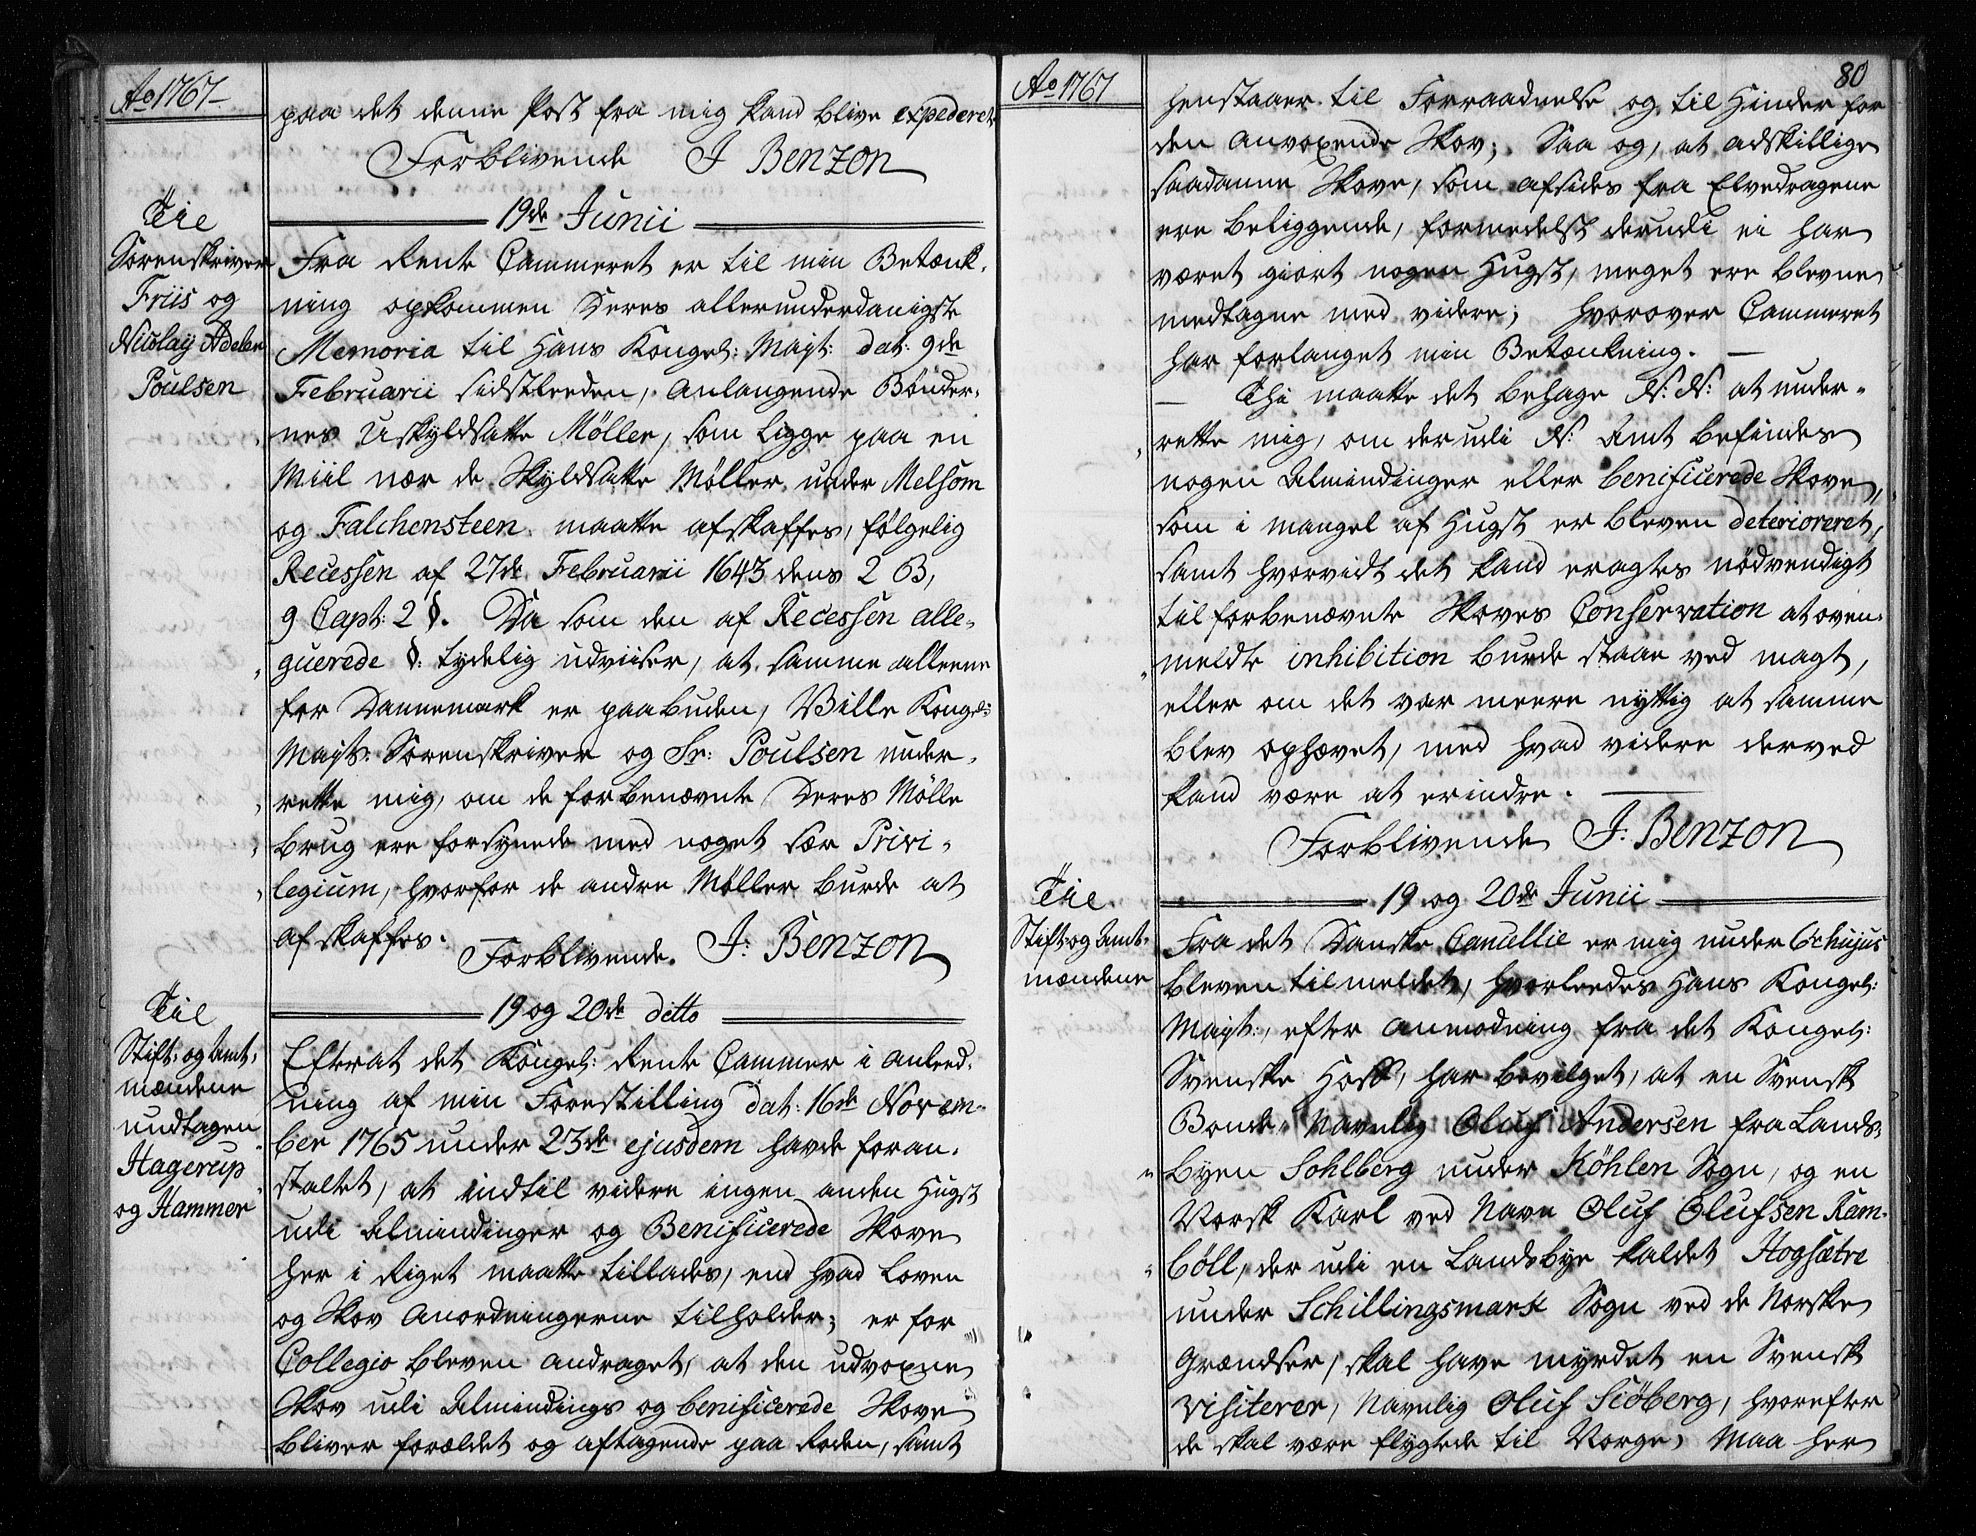 Ao 1767
paa det denne Post fra mig kand blive expederet.
Forblivende J Benzon
19de Junii
Til
Sorenskriver
Friis og
Nicolay Adeler
Poulsen
Fra Rente Cammeret er til min Betænk-
ning opkommen Deres allerunderdanigste
Memoria til Hans Kongel: Mayt: dat: 9de
Februarii sidstleeden, anlangende Bønder-
nes Uskyldsatte Møller, som ligge paa en
Miil nær de Skyldsatte Møller under Melsom
og Falchensteen maatte afskaffes, følgelig
Recessen af 27de Februarii 1643 dens 2 B,
9 Capt: 2 §. Da som den af Recessen alle-
guerede §: tydelig udviiser, at samme alleene
for Dannemark er paabuden, Ville Kongel:
Mayts: Sorenskriver og Sr: Poulsen under-
rette mig, om de forbenævnte Deres Mølle
brug ere forsynede med noget sær Privi-
legium, hvorfor de andre Møller burde at
afskaffes.
Forblivende. J: Benzon
19 og 20de ditto
Til
Stift- og Amt-
mændene
undtagen
Hagerup
og Hammer
Efterat det Kongel: Rente Cammer i anleed-
ning af min Forestilling dat: 16de Novem-
ber 1765 under 23de ejusdem havde foran-
staltet, at indtil videre ingen anden Hugst
udi Almindinger og Benificerede Skove
her i Riget maatte tillades, end hvad Loven
og Skov Anordningerne tilholder; er for
Collegio bleven andraget, at den udvoxne
Skov udi Almindings og benificerede Skove
bliver forældet og aftagende paa Roden, samt
Ao 1767
80
henstaaer til Forraadnelse og til Hinder for
den anvoxende Skov; Saa og, at adskillige
saadanne Skove, som afsides fra Elvedragene
ere beliggende, formedelst derudi ei har
været giort nogen Hugst, meget ere blevne
medtagne med videre; hvorover Cammeret
har forlanget min Betænkning.
Thi maatte det behage N: N: at under-
rette mig, om der udi N: Amt befindes
nogen Almindinger eller benificerede Skove,
som i mangel af Hugst er bleven deterioreret,
samt hvorvidt det kand eragtes nödvendigt
til forbenævnte Skoves Conservation at oven-
meldte inhibition burde staae ved magt,
eller om det var meere nyttig at samme
blev ophævet, med hvad videre derved
kand være at erindre.
Forblivende J: Benzon
19 og 20de Junii
Til
Stift- og Amt-
mændene
Fra det Danske Cancellie er mig under 6te hujus
bleven tilmeldet, hvorleedes Hans Kongel:
Mayt:, efter anmodning fra det Kongel:
Svenske Hoff, har bevilget, at en Svensk
Bonde Navnlig Oluf Andersen fra Lands-
byen Sohlberg under Köhlen Sogn, og en
Norsk Karl ved Navn Oluf Olufsen Ram-
böll, der udi en Landsbye kaldet Hogsætre
under Schillingsmark Sogn ved de Norske
Grændser, skal have myrdet en Svensk
Visiterer, Navnlig Oluf Siöberg, hvorefter
de skal være flygtede til Norge, maa her